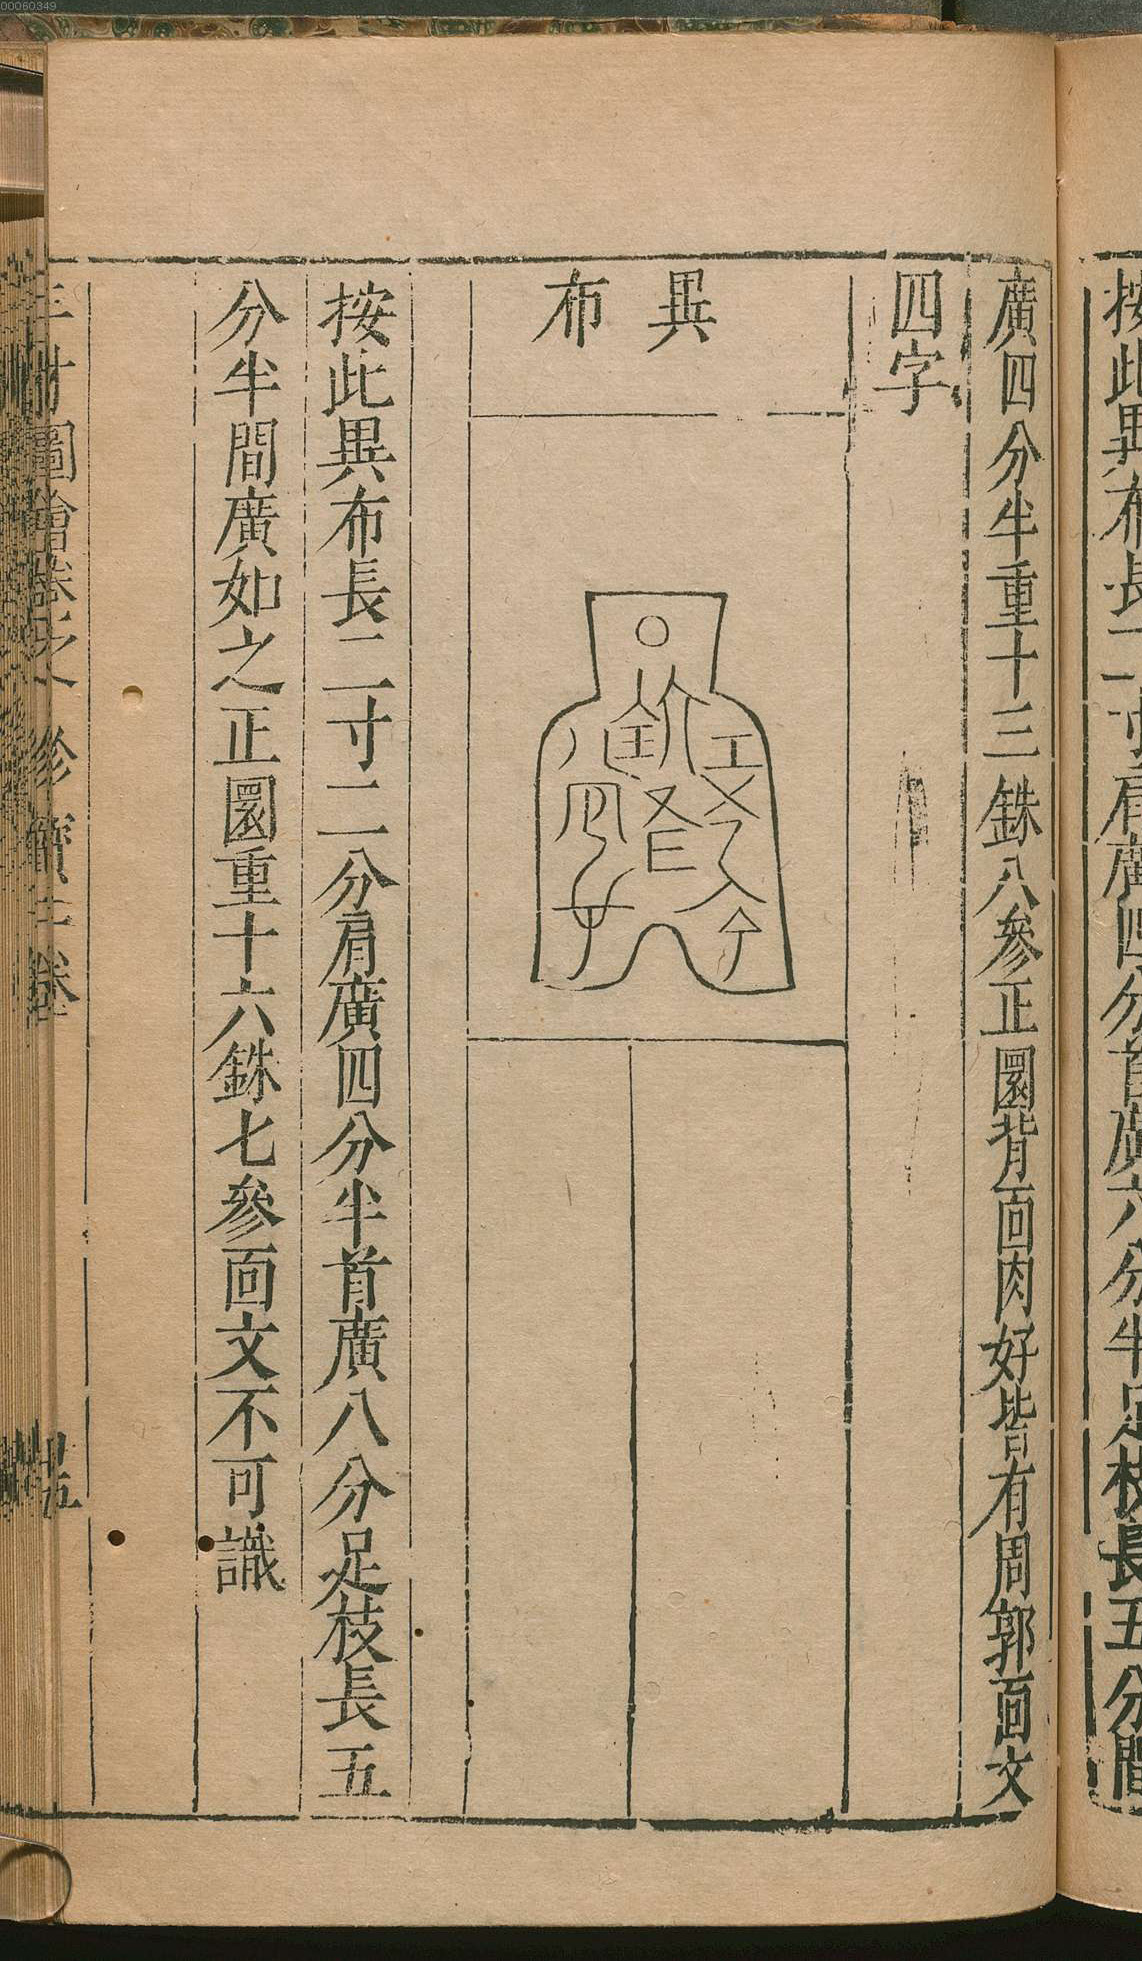 按此異布長二寸肩廣四分首廣六分半足枝長五分間
廣四分半重十三銖八參正圜背面肉好皆有周郭面文
四字
異布
按此異布長二寸二分肩廣四分半首廣八分足枝長五
分半間廣如之正圜重十六銖七參面文不可識
三才圖會
珍寶二卷
00060349